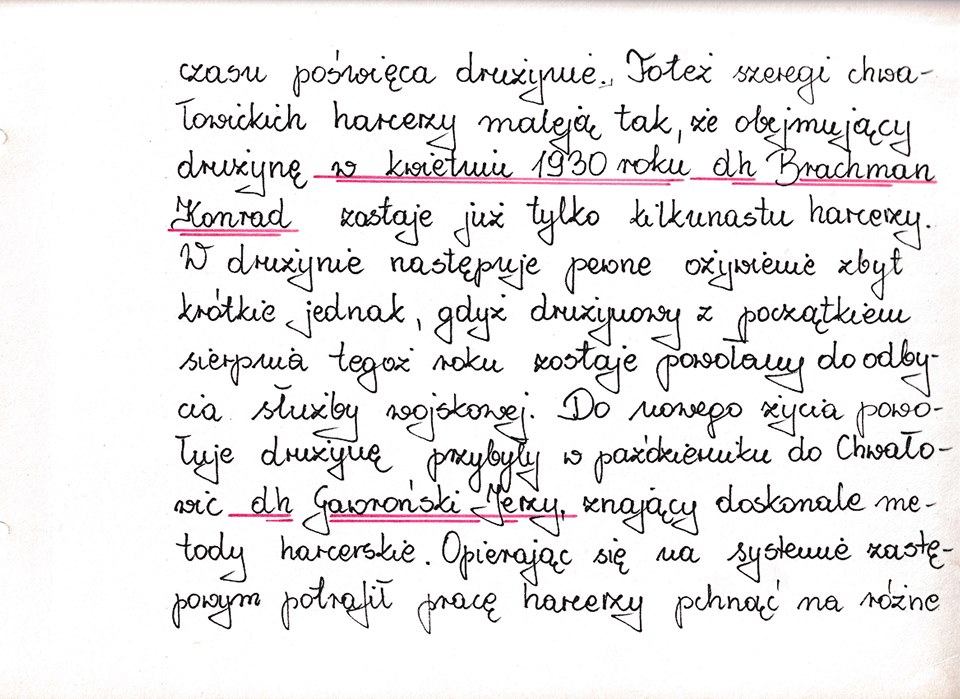 czasu poświęca drużynie. Toteż szeregi chwa-
łowickich harcerzy maleją tak, że obejmujący
drużynę w kwietniu 1930 roku dh Brachman
Konrad zastaje już tylko kilkunastu harcerzy.
W drużynie następuje pewne ożywienie zbyt
krótkie jednak, gdyż drużynowy z początkiem
sierpnia tegoż roku zostaje powołany do odby-
cia służby wojskowej. Do nowego życia powo-
łuje drużynę przybyły w październiku do Chwało-
wic dh Gawroński Jerzy, znający doskonale me-
tody harcerskie. Opierając się na systemie zastę-
powym potrafił pracę harcerzy pchnąć na różne